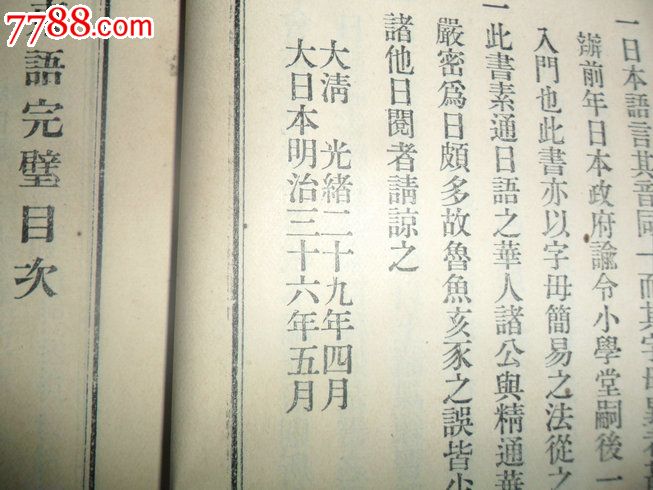 7788.com
一日本語言其音同一而其字母
辦前年日本政府諭令小學堂嗣後一
入門也此書亦以字母簡易之法從之
一此書素通日語之華人諸公與精通華
嚴密爲日頗多故魯魚亥豕之誤皆少
諸他日閱者請諒之
大淸 光緒二十九年四月
大日本明治三十六年五月
語完璧目次